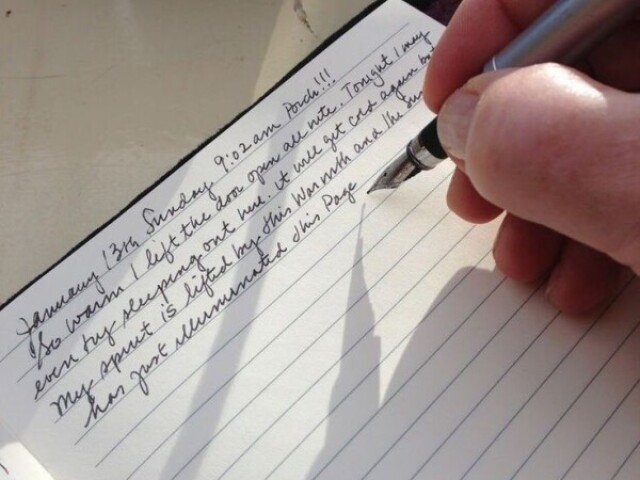 January 13th Sunday 9:02 am Porch!!!
So warm I left the door open all nite. Tonight I may
even try sleeping out here. it will get cold again but
My spirit is lifted by this Warmth and the sun
has just illuminated this Page